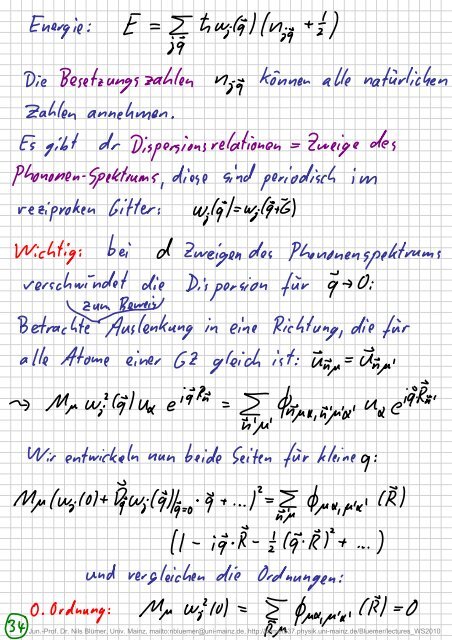 Energie: E = ∑_{j q⃗} ħ ω_j(q⃗) (n_{j q⃗} + 1/2)
Die Besetzungszahlen n_{j q⃗} können alle natürlichen
Zahlen annehmen.
Es gibt dr Dispersionsrelationen = Zweige des
Phononen-Spektrums, diese sind periodisch im
reziproken Gitter: ω_j(q⃗) = ω_j(q⃗+G⃗)
Wichtig: bei d Zweigen des Phononenspektrums
verschwindet die Dispersion für q⃗ → 0:
zum Beweis
Betrachte Auslenkung in eine Richtung, die für
alle Atome einer GZ gleich ist: u⃗_{nμ} = u⃗_{nμ'}
⇝ M_μ ω_j²(q⃗) u_α e^{i q⃗ R⃗_n} = ∑_{n⃗'μ'} ϕ_{n⃗μα, n⃗'μ'α'} u_α e^{i q⃗ R⃗_{n'}}
Wir entwickeln nun beide Seiten für kleine q:
M_μ (ω_j(0) + ∇⃗_q ω_j(q⃗)|_{q=0} · q⃗ + ...)² = ∑_{n⃗'μ'} ϕ_{μα, μ'α'} (R⃗)
(1 - i q⃗·R⃗ - 1/2 (q⃗·R⃗)² + ...)
und vergleichen die Ordnungen:
0. Ordnung: M_μ ω_j²(0) = ∑_{R⃗μ'} ϕ_{μα, μ'α'} (R⃗) = 0
34 Jun.-Prof. Dr. Nils Blümer, Univ. Mainz, mailto:nbluemer@uni-mainz.de, 37.physik.uni-mainz.de/Bluemer/lectures_WS2010